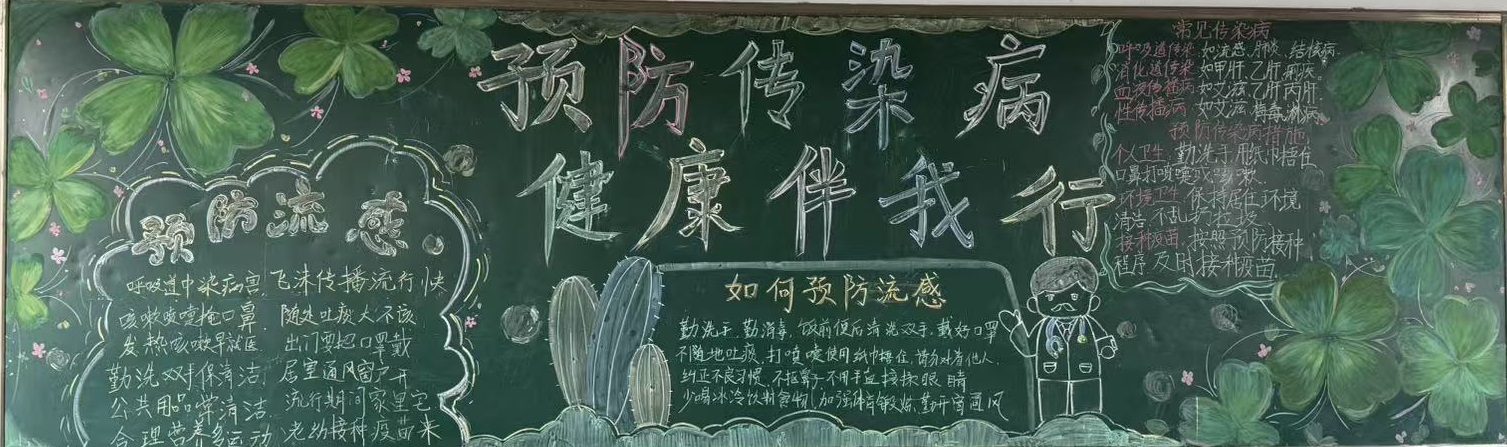 预防传染病
健康伴我行
预防流感
呼吸道中染病害 飞沫传播流行快
咳嗽喷嚏掩口鼻 随处吐痰大不该
发热咳嗽早就医 出门要把口罩戴
勤洗双手保清洁 居室通风窗户开
公共用品常清洁 流行期间家里宅
合理营养多运动 老幼接种疫苗来
如何预防流感
勤洗手,勤消毒,饭前便后清洗双手,戴好口罩
不随地吐痰,打喷嚏使用纸巾捂住,请勿对着他人
纠正不良习惯,不抠鼻子不用手直接揉眼睛
少喝冰冷饮料食物,加强体育锻炼,勤开窗通风
常见传染病
呼吸道传染 如流感、肺炎、结核病.
消化道传染 如甲肝、乙肝、痢疾。
血液传播病 如艾滋、乙肝、丙肝.
性传播病 如艾滋、梅毒、淋病
预防传染病措施
个人卫生,勤洗手,用纸巾捂住
口鼻打喷嚏或咳嗽.
环境卫生 保持居住环境
清洁,不乱扔垃圾
接种疫苗,按照预防接种
程序及时接种疫苗